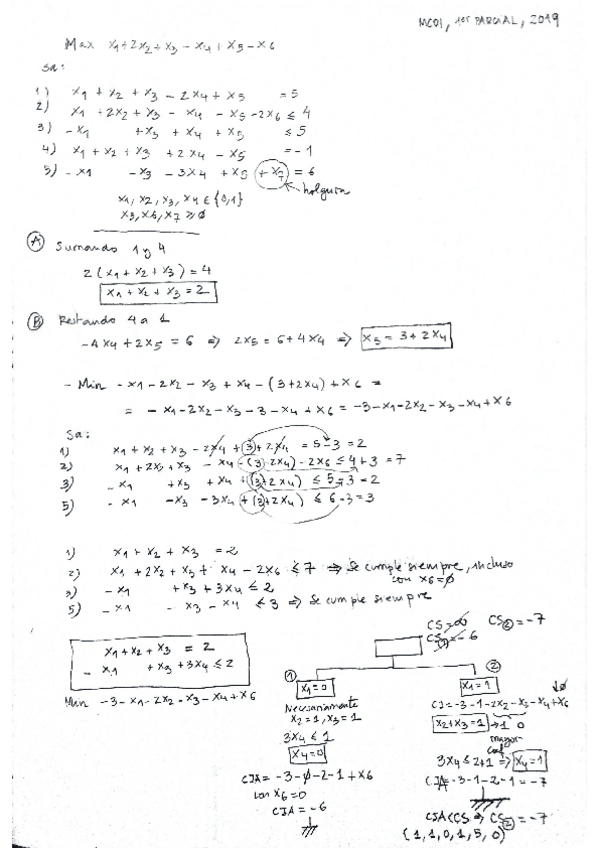 MCOI, 1er PARCIAL, 2019
Max x1+2x2+x3-x4+x5-x6
sa:
1) x1 + x2 + x3 - 2x4 + x5 = 5
2) x1 + 2x2 + x3 - x4 - x5 - 2x6 ≤ 4
3) -x1 + x3 + x4 + x5 ≤ 5
4) x1 + x2 + x3 + 2x4 - x5 = -1
5) -x1 - x3 - 3x4 + x5 + x7 = 6
holgura
x1, x2, x3, x4 ∈ {0,1}
x5, x6, x7 ≥ 0
A Sumando 1 y 4
2(x1 + x2 + x3) = 4
x1 + x2 + x3 = 2
B Restando 4 a 1
-4x4 + 2x5 = 6 ⇒ 2x5 = 6 + 4x4 ⇒ x5 = 3 + 2x4
- Min -x1 - 2x2 - x3 + x4 - (3+2x4) + x6 =
= -x1 - 2x2 - x3 - 3 - x4 + x6 = -3 - x1 - 2x2 - x3 - x4 + x6
sa:
1) x1 + x2 + x3 - 2x4 + 3 + 2x4 = 5 - 3 = 2
2) x1 + 2x2 + x3 - x4 - (3+2x4) - 2x6 ≤ 4 + 3 = 7
3) -x1 + x3 + x4 + (3+2x4) ≤ 5 - 3 = 2
5) -x1 - x3 - 3x4 + (3+2x4) ≤ 6 - 3 = 3
1) x1 + x2 + x3 = 2
2) x1 + 2x2 + x3 + x4 - 2x6 ≤ 7 ⇒ Se cumple siempre, incluso
con x6 = 0
3) -x1 + x3 + 3x4 ≤ 2
5) -x1 - x3 - x4 ≤ 3 ⇒ Se cumple siempre
x1 + x2 + x3 = 2
- x1 + x3 + 3x4 ≤ 2
Min -3 - x1 - 2x2 - x3 - x4 + x6
CS = ∞
CS1 = -6
CS2 = -7
1
x1 = 0
Necesariamente
x2 = 1, x3 = 1
3x4 ≤ 1
x4 = 0
CIA = -3 - 0 - 2 - 1 + x6
con x6 = 0
CIA = -6
2
x1 = 1
CI = -3 - 1 - 2x2 - x3 - x4 + x6
0
x2 + x3 = 1 → 1 0
mayor
coef
3x4 ≤ 2+1 ⇒ x4 = 1
CIA = -3 - 1 - 2 - 1 = -7
CIA < CS ⇒ CS2 = -7
(1, 1, 0, 1, 5, 0)